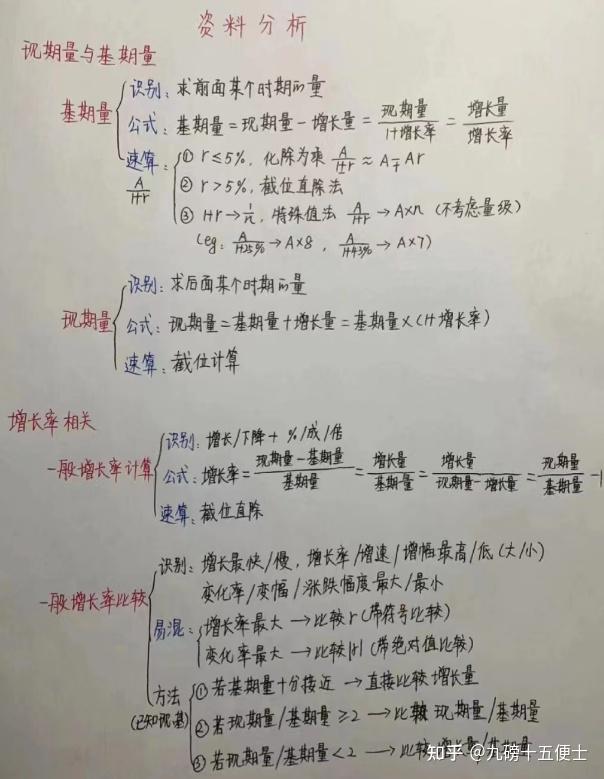 资料分析
现期量与基期量
基期量
识别：求前面某个时期的量
公式：基期量=现期量-增长量=现期量/1+增长率=增长量/增长率
速算：A/1+r
① r≤5%，化除为乘 A/1±r≈A∓Ar
② r>5%，截位直除法
③ 1+r→1/n，特殊值法 A/1+r→A×n (不考虑量级)
(eg: A/1+25%→A×8，A/1+43%→A×7)
现期量
识别：求后面某个时期的量
公式：现期量=基期量+增长量=基期量×(1+增长率)
速算：截位计算
增长率相关
一般增长率计算
识别：增长/下降+%/成/倍
公式：增长率=现期量-基期量/基期量=增长量/基期量=增长量/现期量-增长量=现期量/基期量-1
速算：截位直除
一般增长率比较
识别：增长最快/慢，增长率/增速/增幅最高/低(大/小)
变化率/变幅/涨跌幅度最大/最小
易混：增长率最大→比较r(带符号比较)
变化率最大→比较|r|(带绝对值比较)
方法(已知现基)
① 若基期量十分接近→直接比较增长量
② 若现期量/基期量≥2→比较 现期量/基期量
③ 若现期量/基期量<2→比较增长量/基期量
知乎 @九磅十五便士